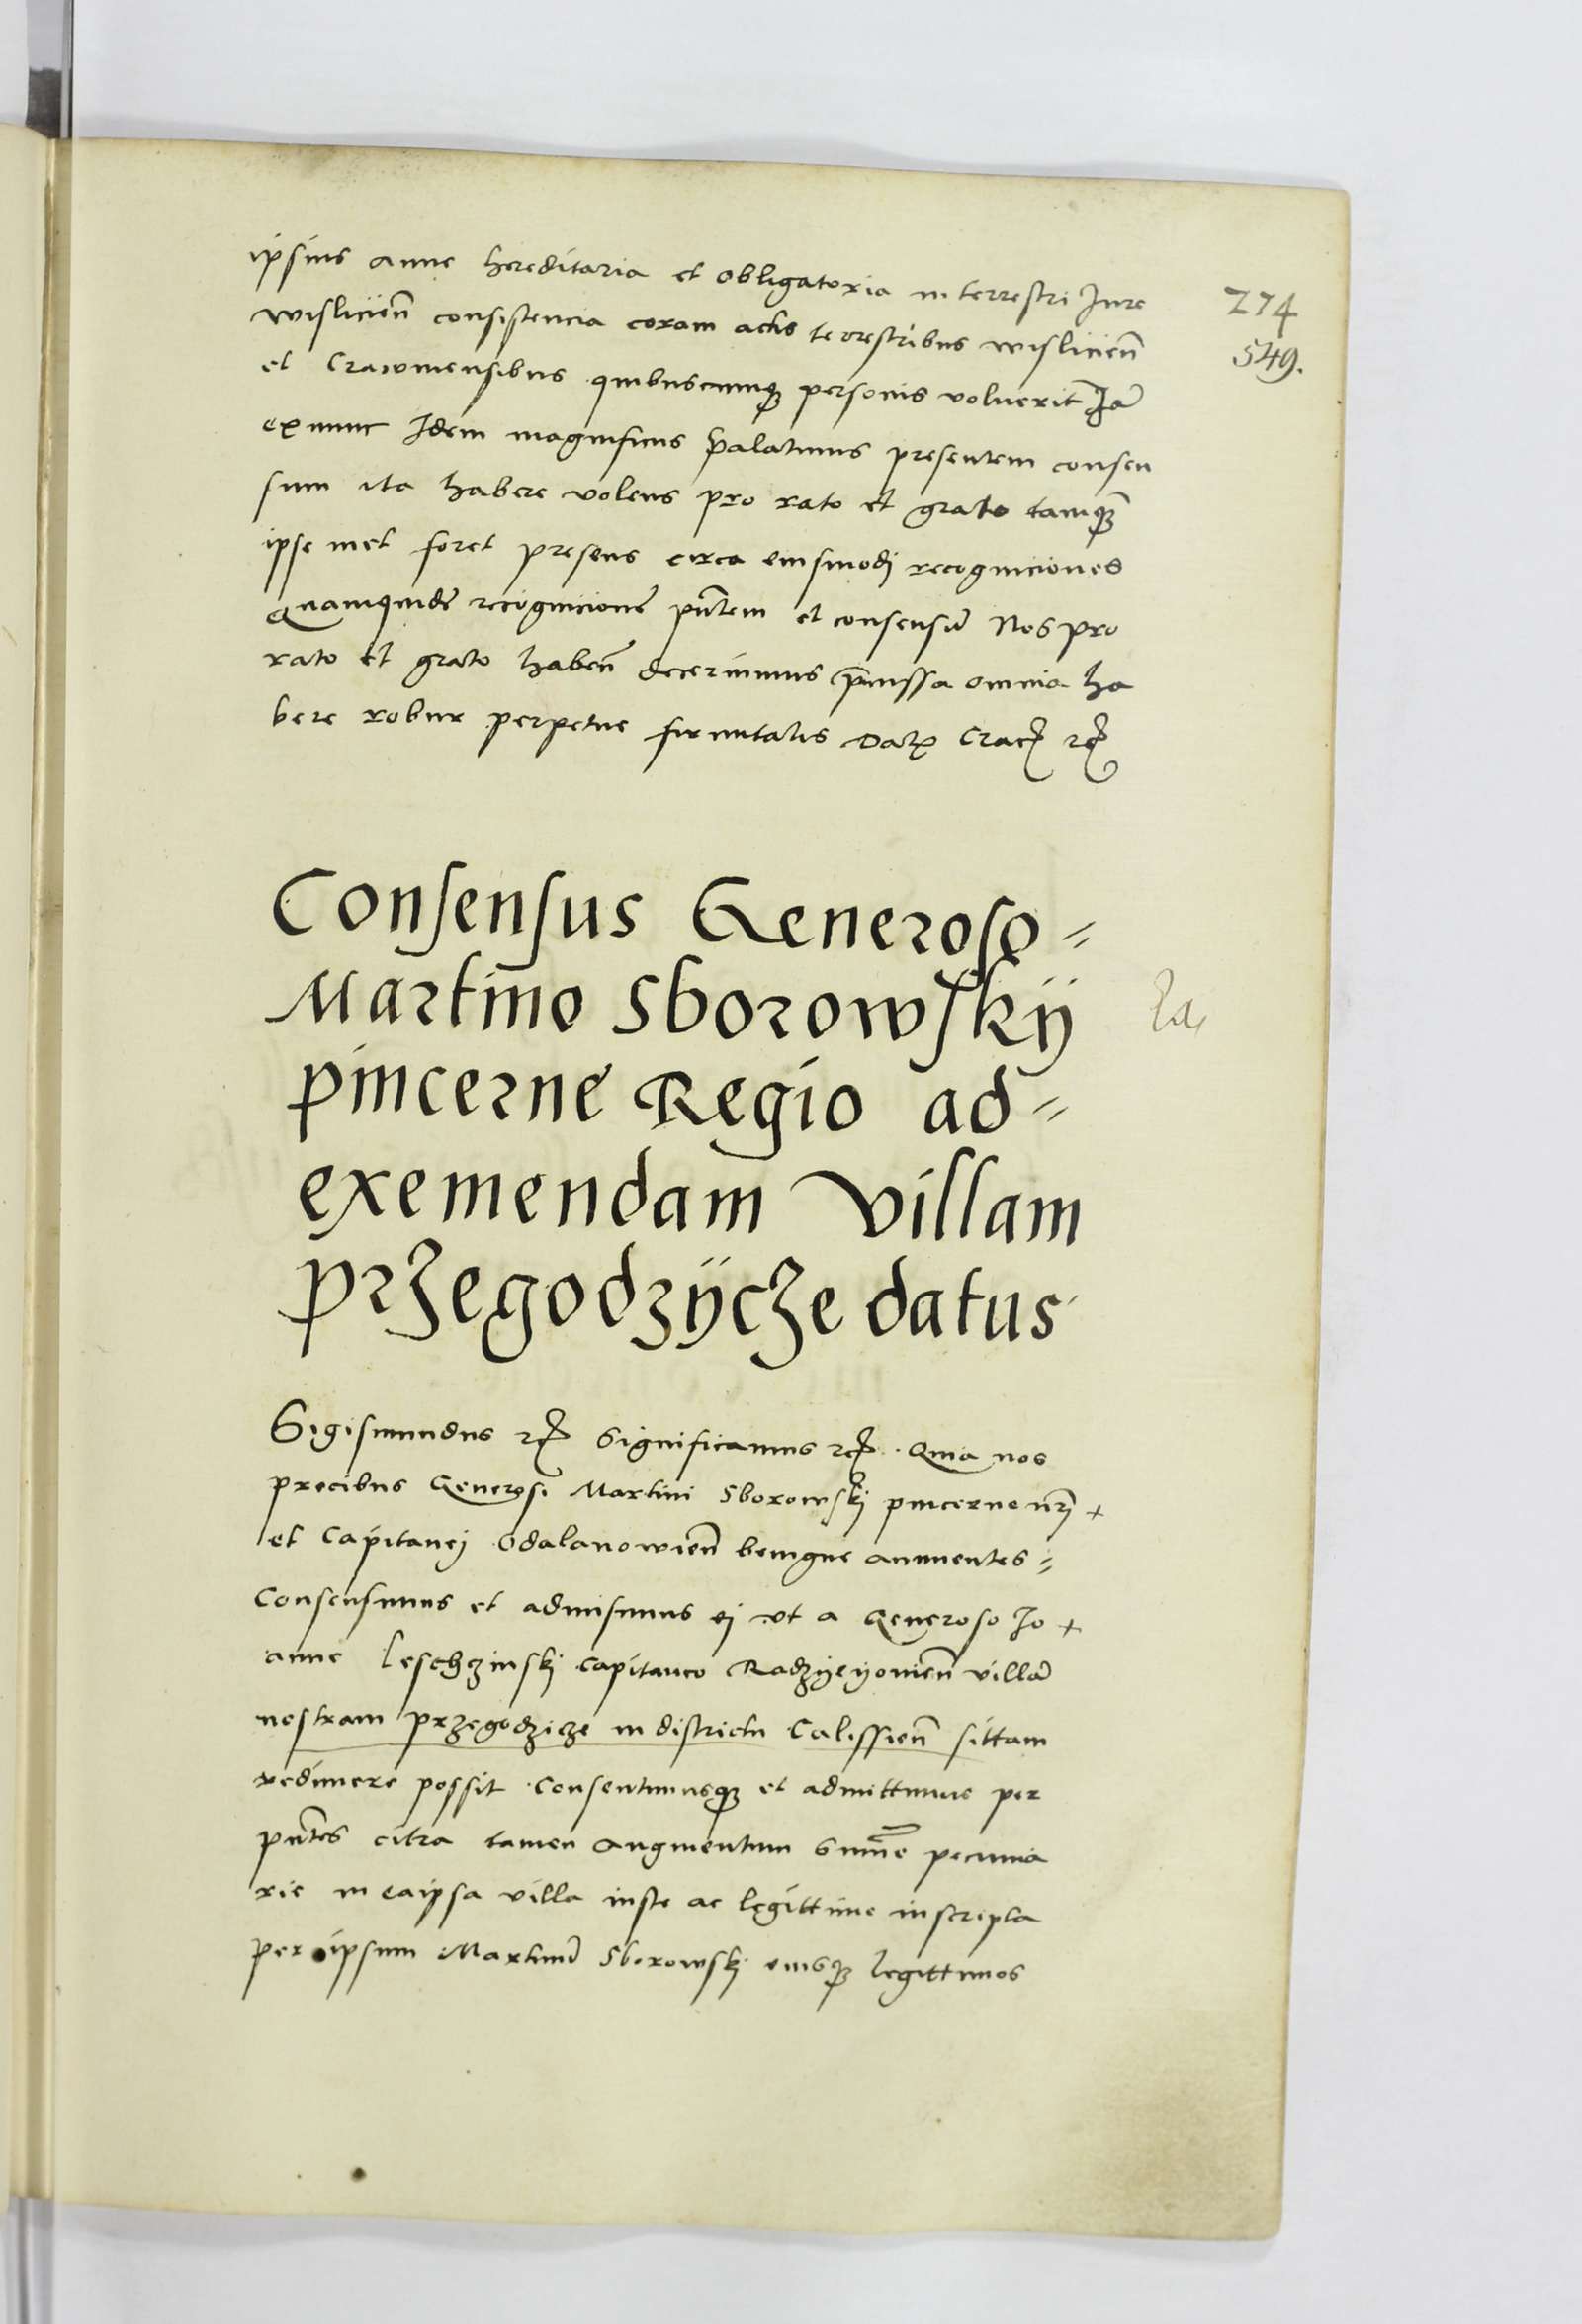 ipsius anne hereditaria et obligatoria in terrestri Jure
274
wisliciēn consistencia coram actis terrestribus wisliciēn
549.
et Cracoviensibus quibuscumqꝫ personis voluerit Jā
ex nunc Idem magnificus palatinus presentem consen
sum ita habere volens pro rato et grato tamqꝫ
ipse met foret presens circa eiusmodi recogniciones
Quamquidē recognicionē pn̄tem et consensū Nos pro
rato et grato habeñ decernimus p̄missa omnia ha
bere robur perpetue firmitatis Datꝭ Cracꝭ rcꝭ
Consensus Generoso =
Martino Sborowskÿ
pincerne Regio ad =
exemendam villam
przegodzÿcze datus
Sigismundus rcꝭ Significamus rcꝭ. Quia nos
precibus Generosi Martini Sborowskj pincerne nr̄j +
et Capitanej Odalanowieñ benigne annuentes =
Consensimus et admisimus ej vt a Generoso Jo +
anne Leschzinskj Capitaneo Radzÿeÿovieñ villā
nostram przegodzicze in districtu Calissieñ sittam
redimere possit Consentimusqꝫ et admittimus per
pn̄tes citra tamen augmentum sum̄e pecunia
rie in eaipsa villa iuste ac legittime inscripta
per ipsum Martinū Sborowskj eiusqꝫ legittimos